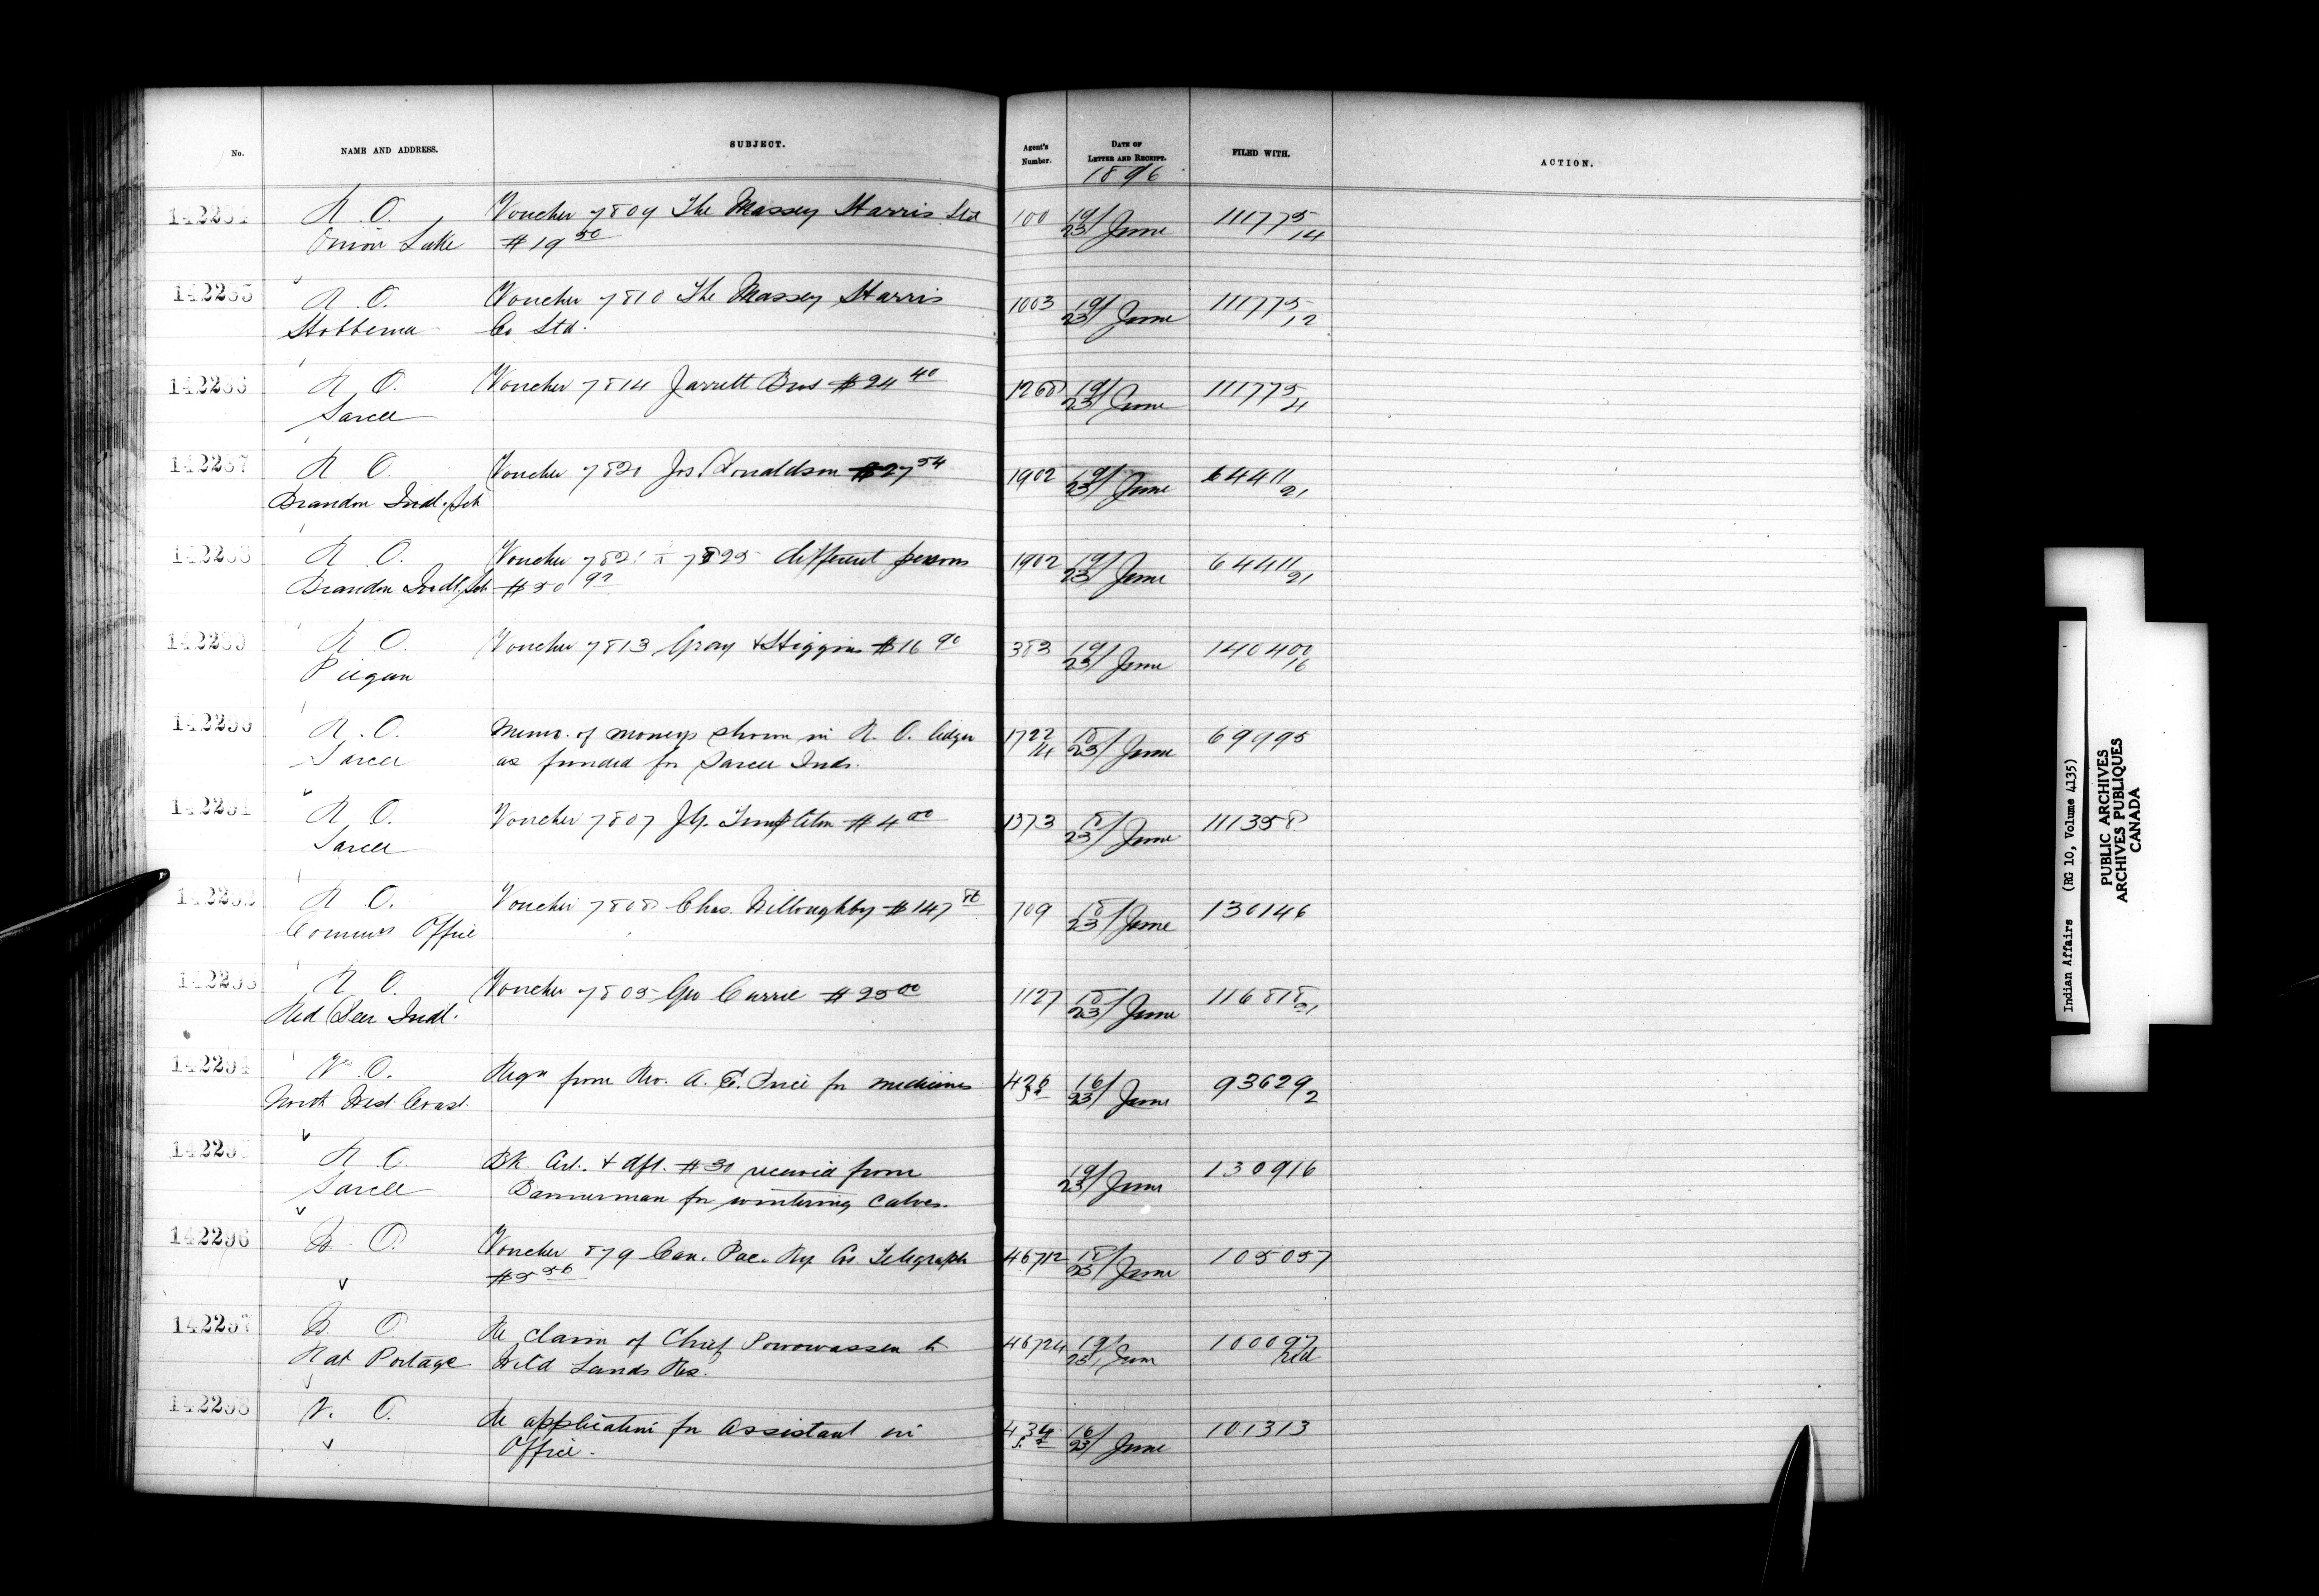 No. NAME AND ADDRESS. SUBJECT. Agent's Number. DATE OF LETTER AND RECEIPT. FILED WITH. ACTION.
1896
142284 R. O. Voucher 7809 The Massey Harris Ltd 100 19/23 June 111775/14
Onion Lake #19 50
142285 R. O. Voucher 7810 The Massey Harris 1003 19/23 June 111775/12
Hobbema Co Ltd.
142286 R. O. Voucher 7814 Jarrett Bros #24 40 1268 19/23 June 111775/4
Sarcee
142287 R. O. Voucher 7821 Jos Donaldson #27 54 1902 19/23 June 64411/21
Brandon Indl. Sch
142288 R. O. Voucher 7821 to 7825 different persons 1902 19/23 June 64411/21
Brandon Indl. Sch #50 92
142289 R. O. Voucher 7813 Gray & Higgins #16 90 383 19/23 June 140400/16
Piegan
142290 R. O. Memo. of moneys shown in R. O. ledger 1722/14 18/23 June 69995
Sarcee as funded for Sarcee Inds.
142291 R. O. Voucher 7807 J.G. Templeton #4 00 1373 18/23 June 111358
Sarcee
142292 R. O. Voucher 7808 Chas. Willoughby #147 109 18/23 June 130146
Commrs Office
142293 R. O. Voucher 7805 Geo Currie #25 00 1127 18/23 June 116818/21
Red Deer Indl.
142294 V. O. Reqn from Rev. A. E. Price for medicines 426 16/23 June 93629/2
North West Coast.
142295 R. O. Bk. Crt. & dft. #30 received from 19/23 June 130916
Sarcee Bannerman for wintering calves.
142296 B. O. Voucher 879 Can. Pac. Ry Co. Telegraph 46712 18/23 June 105057
#5 56
142297 B. O. Re claim of Chief Powowassen to 46724 19/23 June 100097
Rat Portage Wild Lands Res. Red
142298 V. O. Re application for assistant in 434 16/23 June 101313
Office.
Indian Affairs (RG 10, Volume 4135)
PUBLIC ARCHIVES
ARCHIVES PUBLIQUES
CANADA